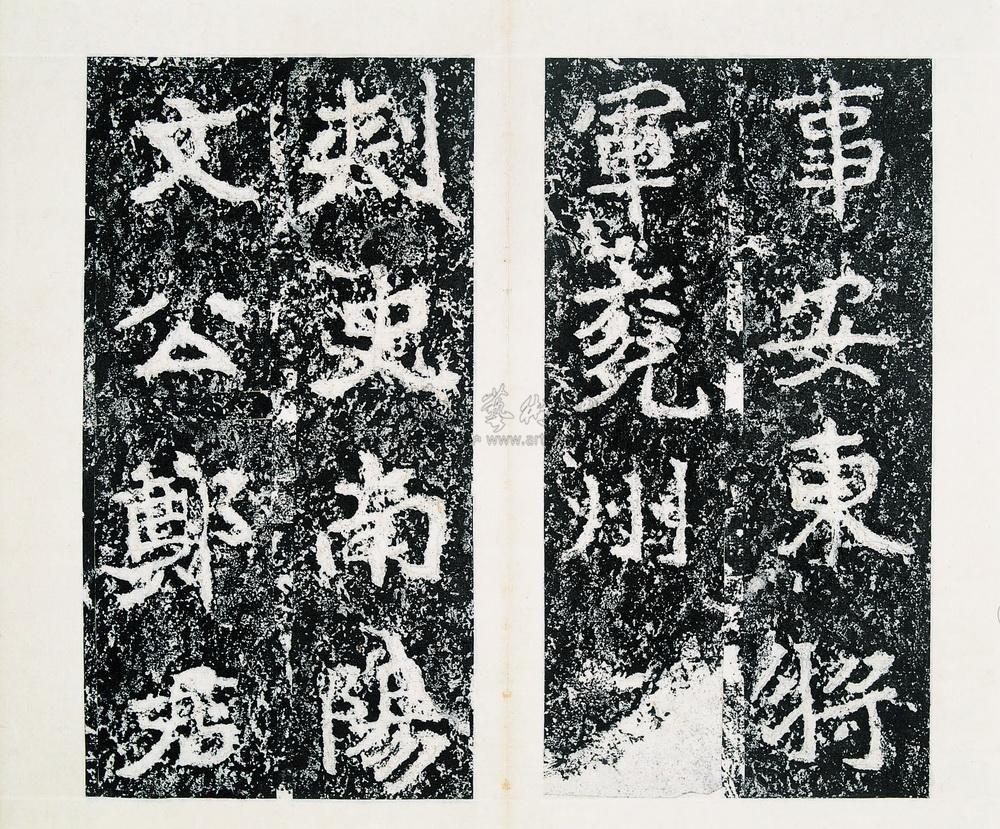 事安東將
軍兗州
刺史南陽
文公鄭君
藝術
www.art